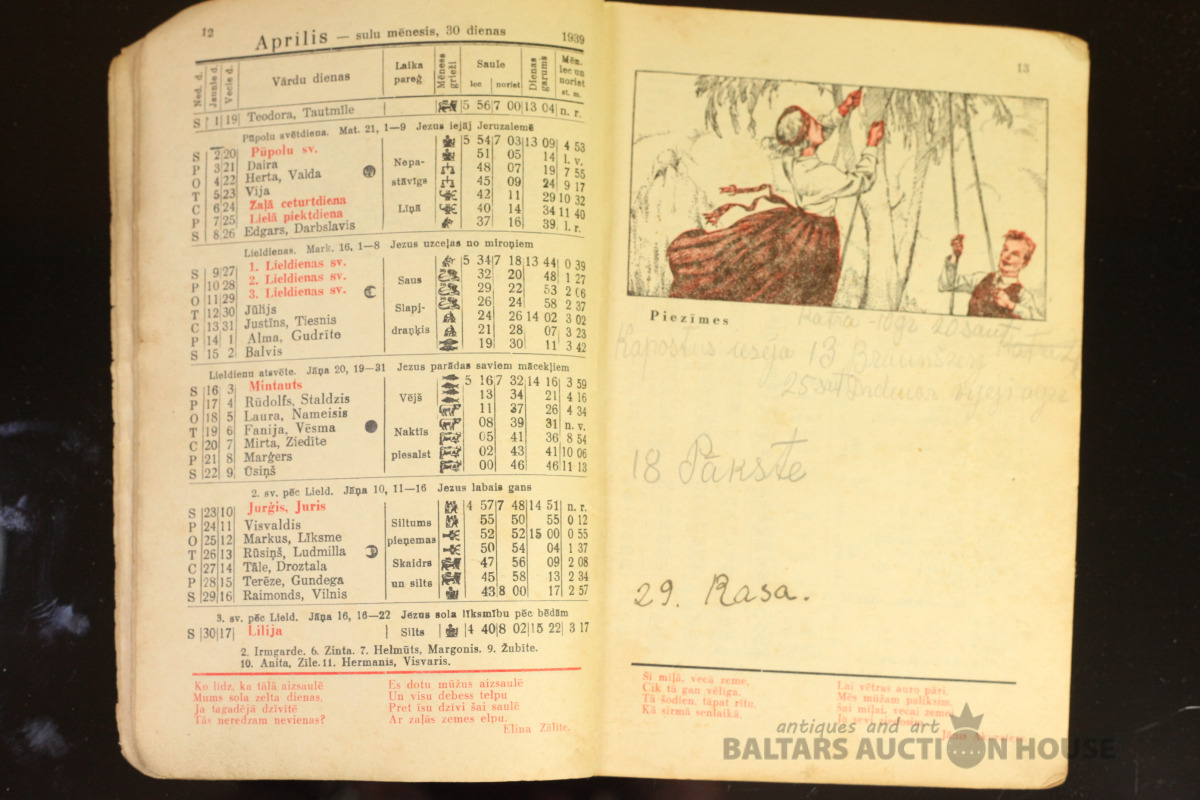 12
Aprilis — sulu mēnesis, 30 dienas 1939
Ned. d. Jaunie d. Vecie d. Vārdu dienas Laika pareģ. Mēness griežī Saule lec noriet Dienas garums Mēn. lec un noriet st. m.
S 1 19 Teodora, Tautmīle 5 56 7 00 13 04 n. r.
Pūpolu svētdiena. Mat. 21, 1—9 Jezus iejāj Jeruzalemē
S 2 20 Pūpolu sv. 5 54 7 03 13 09 4 53
P 3 21 Daira Nepa- 51 05 14 l. v.
O 4 22 Herta, Valda 48 07 19 7 55
T 5 23 Vija stāvīgs 45 09 24 9 17
C 6 24 Zaļā ceturtdiena 42 11 29 10 32
P 7 25 Lielā piektdiena Līņā 40 14 34 11 40
S 8 26 Edgars, Darbslavis 37 16 39 l. r.
Lieldienas. Mark. 16, 1—8 Jezus uzceļas no miroņiem
S 9 27 1. Lieldienas sv. 5 34 7 18 13 44 0 39
P 10 28 2. Lieldienas sv. Saus 32 20 48 1 27
O 11 29 3. Lieldienas sv. 29 22 53 2 06
T 12 30 Jūlijs Slapj- 26 24 58 2 37
C 13 31 Justīns, Tiesnis 24 26 14 02 3 02
P 14 1 Alma, Gudrīte draņķis 21 28 07 3 23
S 15 2 Balvis 19 30 11 3 42
Lieldienu atsvēte. Jāņa 20, 19—31 Jezus parādas saviem mācekļiem
S 16 3 Mintauts 5 16 7 32 14 16 3 59
P 17 4 Rūdolfs, Staldzis Vējš 13 34 21 4 16
O 18 5 Laura, Nameisis 11 37 26 4 34
T 19 6 Fanija, Vēsma Naktīs 08 39 31 n. v.
C 20 7 Mirta, Ziedīte 05 41 36 8 54
P 21 8 Marģers piesalst 02 43 41 10 06
S 22 9 Ūsiņš 00 46 46 11 13
2. sv. pēc Lield. Jāņa 10, 11—16 Jezus labais gans
S 23 10 Jurģis, Juris 4 57 7 48 14 51 n. r.
P 24 11 Visvaldis Siltums 55 50 55 0 12
O 25 12 Markus, Līksme pieņemas 52 52 15 00 0 55
T 26 13 Rūsiņš, Ludmilla 50 54 04 1 37
C 27 14 Tāle, Droztala Skaidrs 47 56 09 2 08
P 28 15 Terēze, Gundega un silts 45 58 13 2 34
S 29 16 Raimonds, Vilnis 43 8 00 17 2 57
3. sv. pēc Lield. Jāņa 16, 16—22 Jezus sola līksmību pēc bēdām
S 30 17 Lilija Silts 4 40 8 02 15 22 3 17
2. Irmgarde. 6. Zinta. 7. Helmūts, Margonis. 9. Žubīte.
10. Anita, Zīle. 11. Hermanis, Visvaris.
Ko līdz, ka tālā aizsaulē
Mums sola zelta dienas,
Ja tagadējā dzīvitē
Tās neredzam nevienas?
Es dotu mūžus aizsaulē
Un visu debess telpu
Pret īsu dzīvi šai saulē
Ar zaļās zemes elpu.
Elīna Zālīte.
13
Piezīmes
Kapostus iesēja 13
18 Pākste
29. Rasa.
Si miļā, vecā zeme,
Cik tā gan vēlīga.
Tā šodien, tāpat rītu,
Kā sirmā senlaikā.
Lai vētras auro pāri,
Mēs mūžam paliksim,
Šai miļai, vecai zemei
antiques and art
BALTARS AUCTION HOUSE